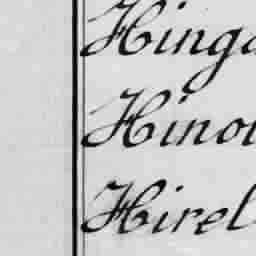 Hinga
Hinoi
Hirel